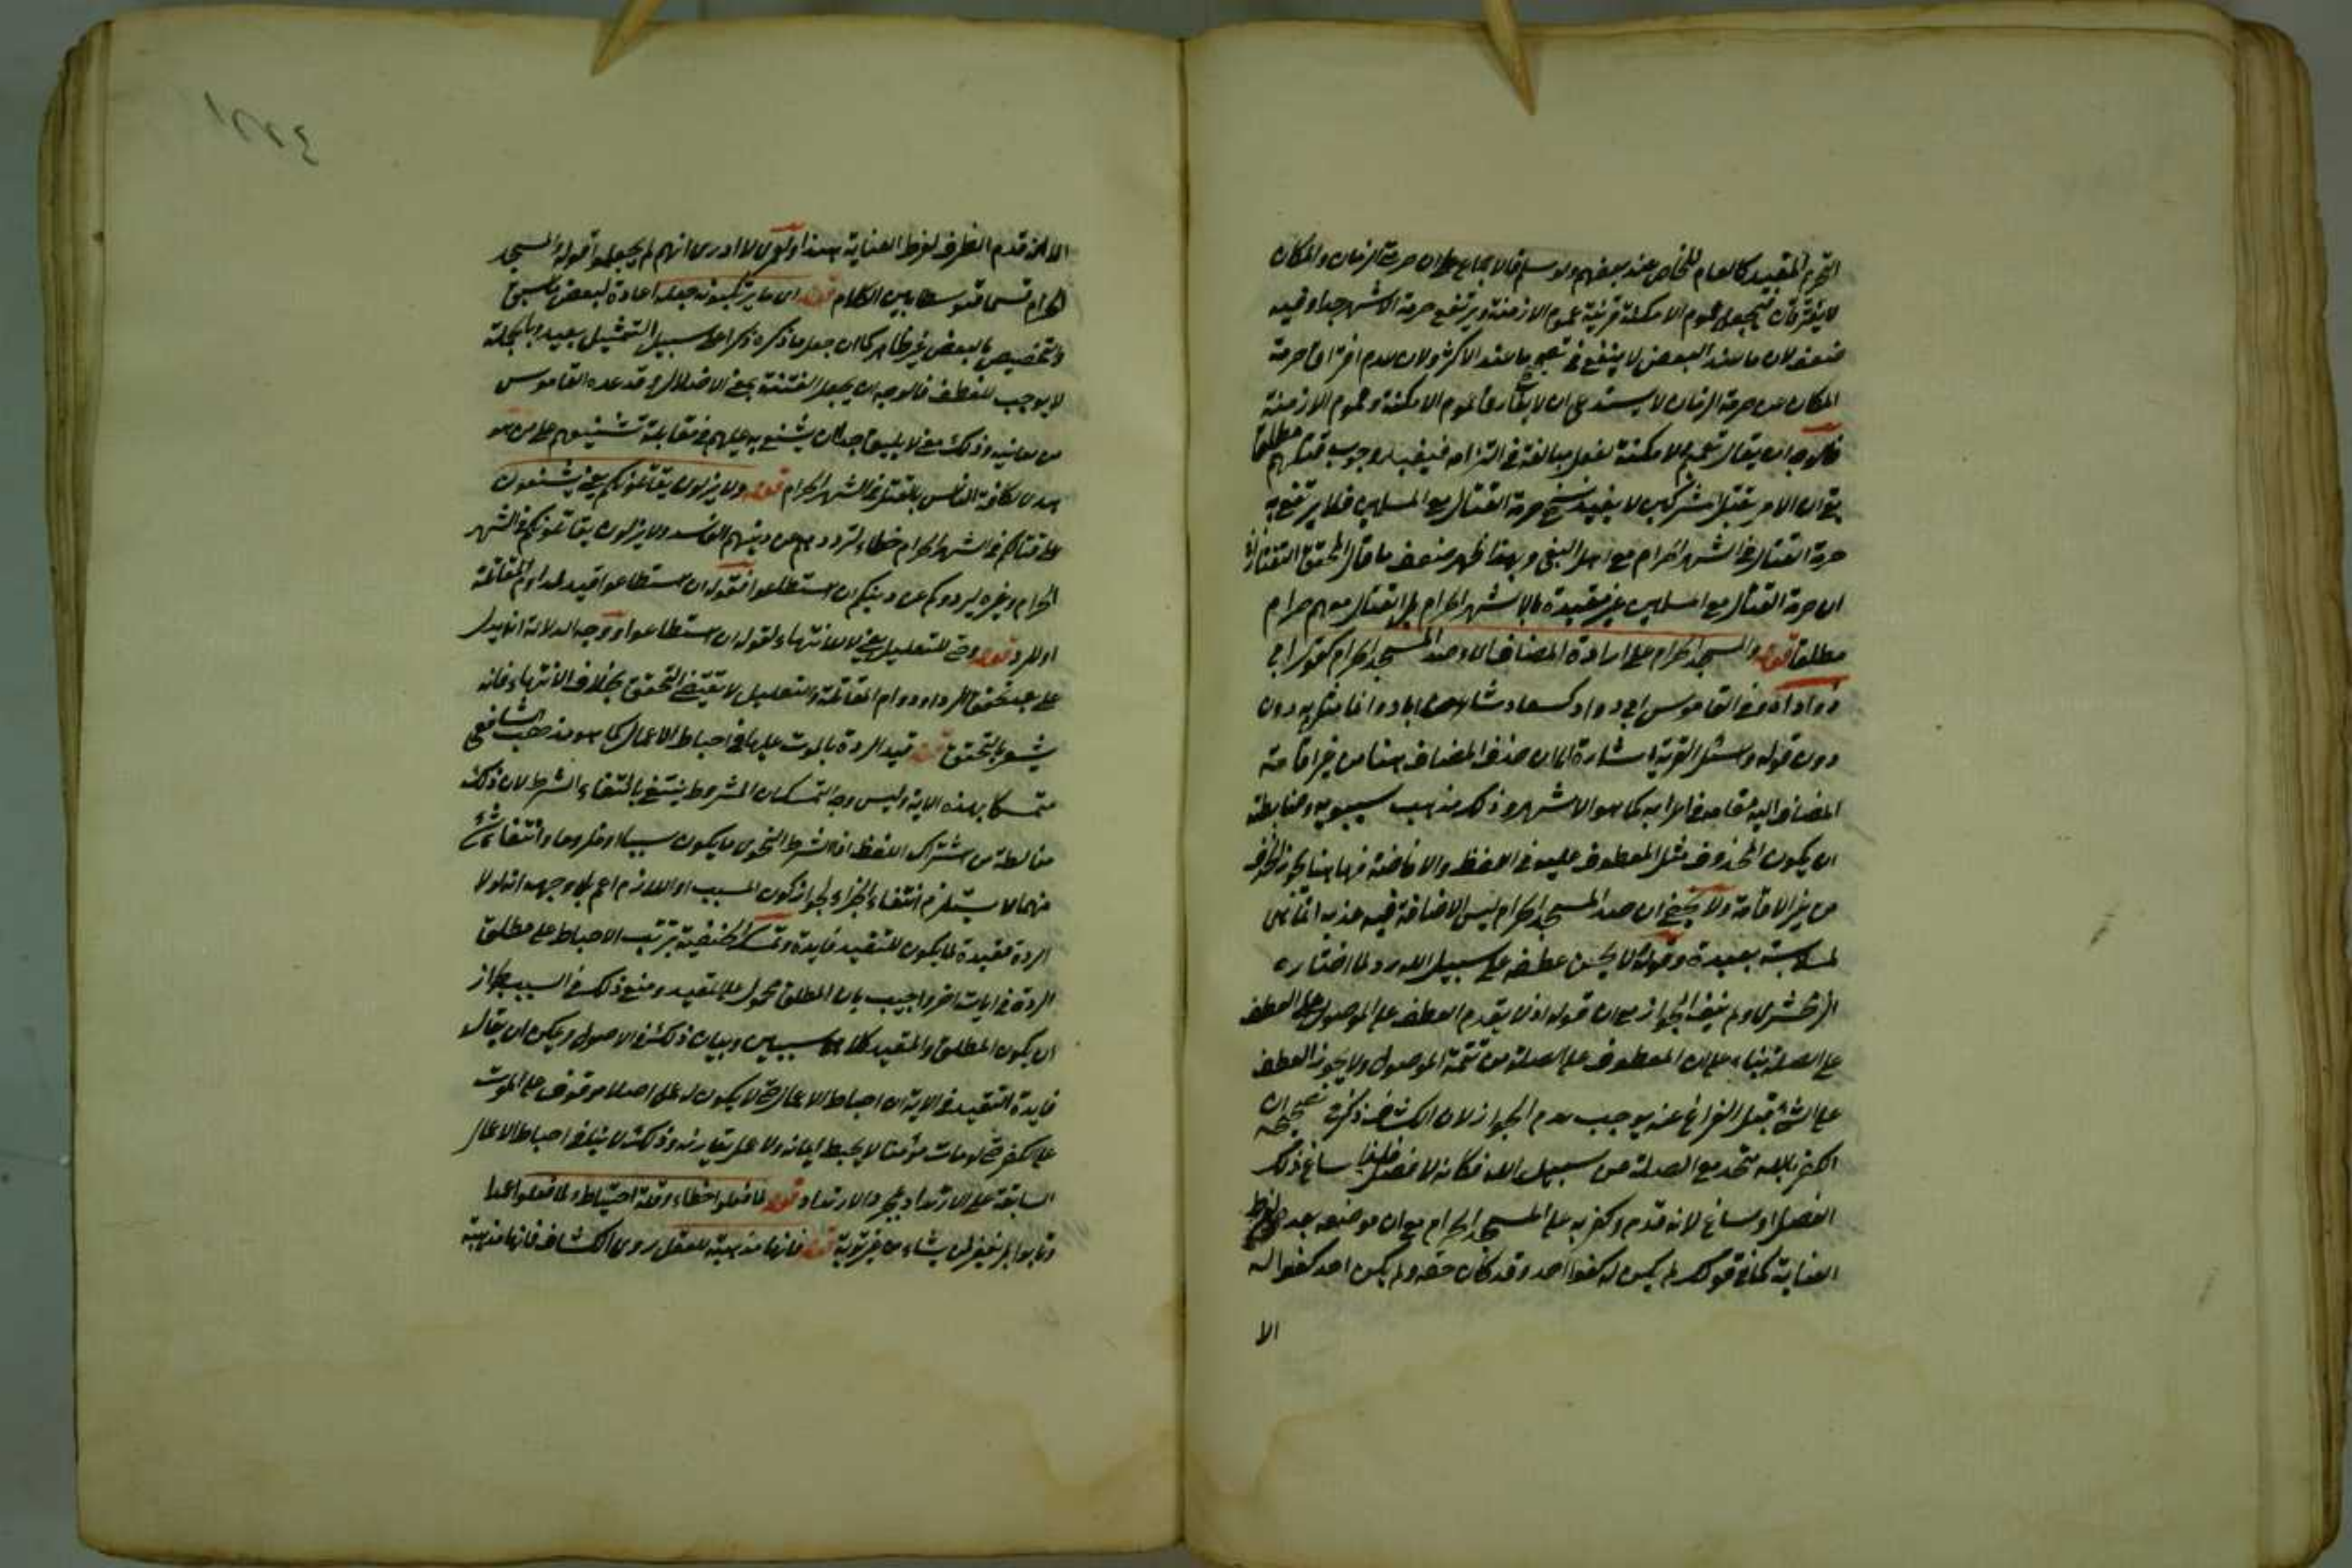 التحريم المقيد كالعام للخاص عند بعضهم ولو سلم فالاجماع على ان حرمة الزمان والمكان
لا يفترقان فيجعل عموم الامكنة قرينة عموم الازمنة ويرتفع حرمة الاشهر جدا وفيه
ضعف لان ما عند البعض لا ينفع في تصحيح ما عند الاكثر ولان عدم افتراق حرمة
المكان عن حرمة الزمان لا يستدعي ان لا يفارق عموم الامكنة وعموم الازمنة
فالوجه ان يقال تعميم الامكنة لفعل مبالغة في التزامه فيفيد وجوب قتلهم مطلقا
بقي ان الامر بقتل المشركين لا يفيد نسخ حرمة القتال مع المسلمين فلا يرتفع به
حرمة القتال في الشهر الحرام مع اهل البغي وبهذا ظهر ضعف ما قال المحقق التفتازاني
ان حرمة القتال مع المسلمين غير مقيدة بالاشهر الحرام بل القتال معهم حرام
مطلقا قوله والمسجد الحرام على ارادة المضاف اي وصد المسجد الحرام كقول ابي
دواد وفي القاموس ابي دواد كسعاد شاعر من اياد وانما مثل به دون
دون قوله واسئل القرية اشارة الى ان حذف المضاف هنا من غير اقامة
المضاف اليه مقامه في اعرابه كما هو الاشهر وذلك مذهب سيبويه وضابطته
ان يكون المحذوف مثل المعطوف عليه في اللفظ والاضافة فهاهنا يجوز الحذف
من غير الاقامة ولا يخفى ان صد المسجد الحرام ليس الاضافة فيه
لملابسة بعيدة وقوله لا يحسن عطفه على سبيل الله رد لما اختاره
الزمخشري ولم ينف الجواز مع ان قوله اذ لا يقدم العطف على الموصول على العطف
على الصلة بناء على ان المعطوف على الصلة من تتمة الموصول ولا يجوز العطف
على الشيء قبل الفراغ عنه يوجب عدم الجواز لان الكشاف ذكر في تصحيحه ان
الكفر بالله متحد مع الصد عن سبيل الله فكانه لا فصل ساغ ذلك
الفصل او ساغ لانه قدم وكفر به على المسجد الحرام مع ان موضعه بعده لفرط
العناية كما في قولك لم يكن له كفوا احد وقد كان حقه ولم يكن احد كفوا له
الا
١٨٤
الا انه قدم الظرف لفرط العناية هذا واقول لا ادري انهم لم يجعلوا قوله والمسجد
الحرام قسما متوسطا بين الكلام قوله اي ما يرتكبونه جعله اعادة لبعض ما سبق
والتخصيص بالبعض غير ظاهر كما ان جعل ما ذكره ذكرا على سبيل التمثيل بعيد وبالجملة
لا يوجب للعطف فالوجه ان يجعل الفتنة بمعنى الاضلال وقد عده القاموس
من معانيه وذلك معنى لا يليق جدا ان يشنع به عليهم في مقابلة تشنيعهم على من هو
هدى لكافة الناس بالقتل في الشهر الحرام قوله ولا يزالون يقاتلونكم يعني يشنعون
على قتالكم في الشهر الحرام خطاء لتردد هم عن دينهم الفاسد ولا يزالون يقاتلونكم في الشهر
الحرام وغيره ليردوكم عن دينكم ان استطاعوا فقوله ان استطاعوا قيد لدوام المقاتلة
او للرد قوله وحتى للتعليل يعني لا للانتهاء لقوله ان استطاعوا ووجه الدلالة انه يدل
على عدم تحقق الرد او دوام المقاتلة والتعليل لا يقتضي التحقق بخلاف الانتهاء فانه
يشعر بالتحقق قوله قيد الردة بالموت عليها في احباط الاعمال كما هو مذهب الشافعي
متمسكا بهذه الاية وليس وجه التمسك ان المشروط ينتفي بانتفاء الشرط لان ذلك
مغالطة من اشتراك اللفظ اذ الشرط النحوي ما يكون سببا او ملزوما وانتفاء شيء
منهما لا يستلزم انتفاء الجزاء لجواز كون المسبب او اللازم اعم بل وجهه انه لولا
الردة مقيدة لما يكون للتقييد فايدة وتمسك الحنفية بترتب الاحباط على مطلق
الردة في ايات اخر واجيب بان المطلق محمول على المقيد ومنع ذلك في السبب لجواز
ان يكون المطلق والمقيد كلاهما سببين وبيان ذلك في الاصول ويمكن ان يقال
فايدة التقييد في الاية ان احباط الاعمال حتى لا يكون له عمل اصلا موقوف على الموت
على الكفر حتى لو مات مؤمنا لا يحبط ايمانه ولا عمل يقارنه وذلك لا ينافي احباط الاعمال
السابقة على الارتداد بمجرد الارتداد قوله لما فعلوا خطاء وقلة احتياط ولما فعلوا عمدا
وتابوا بل يغفر لمن يشاء من غير توبة قوله فانها مذهبة للعقل روى الكشاف فانها مذهبة